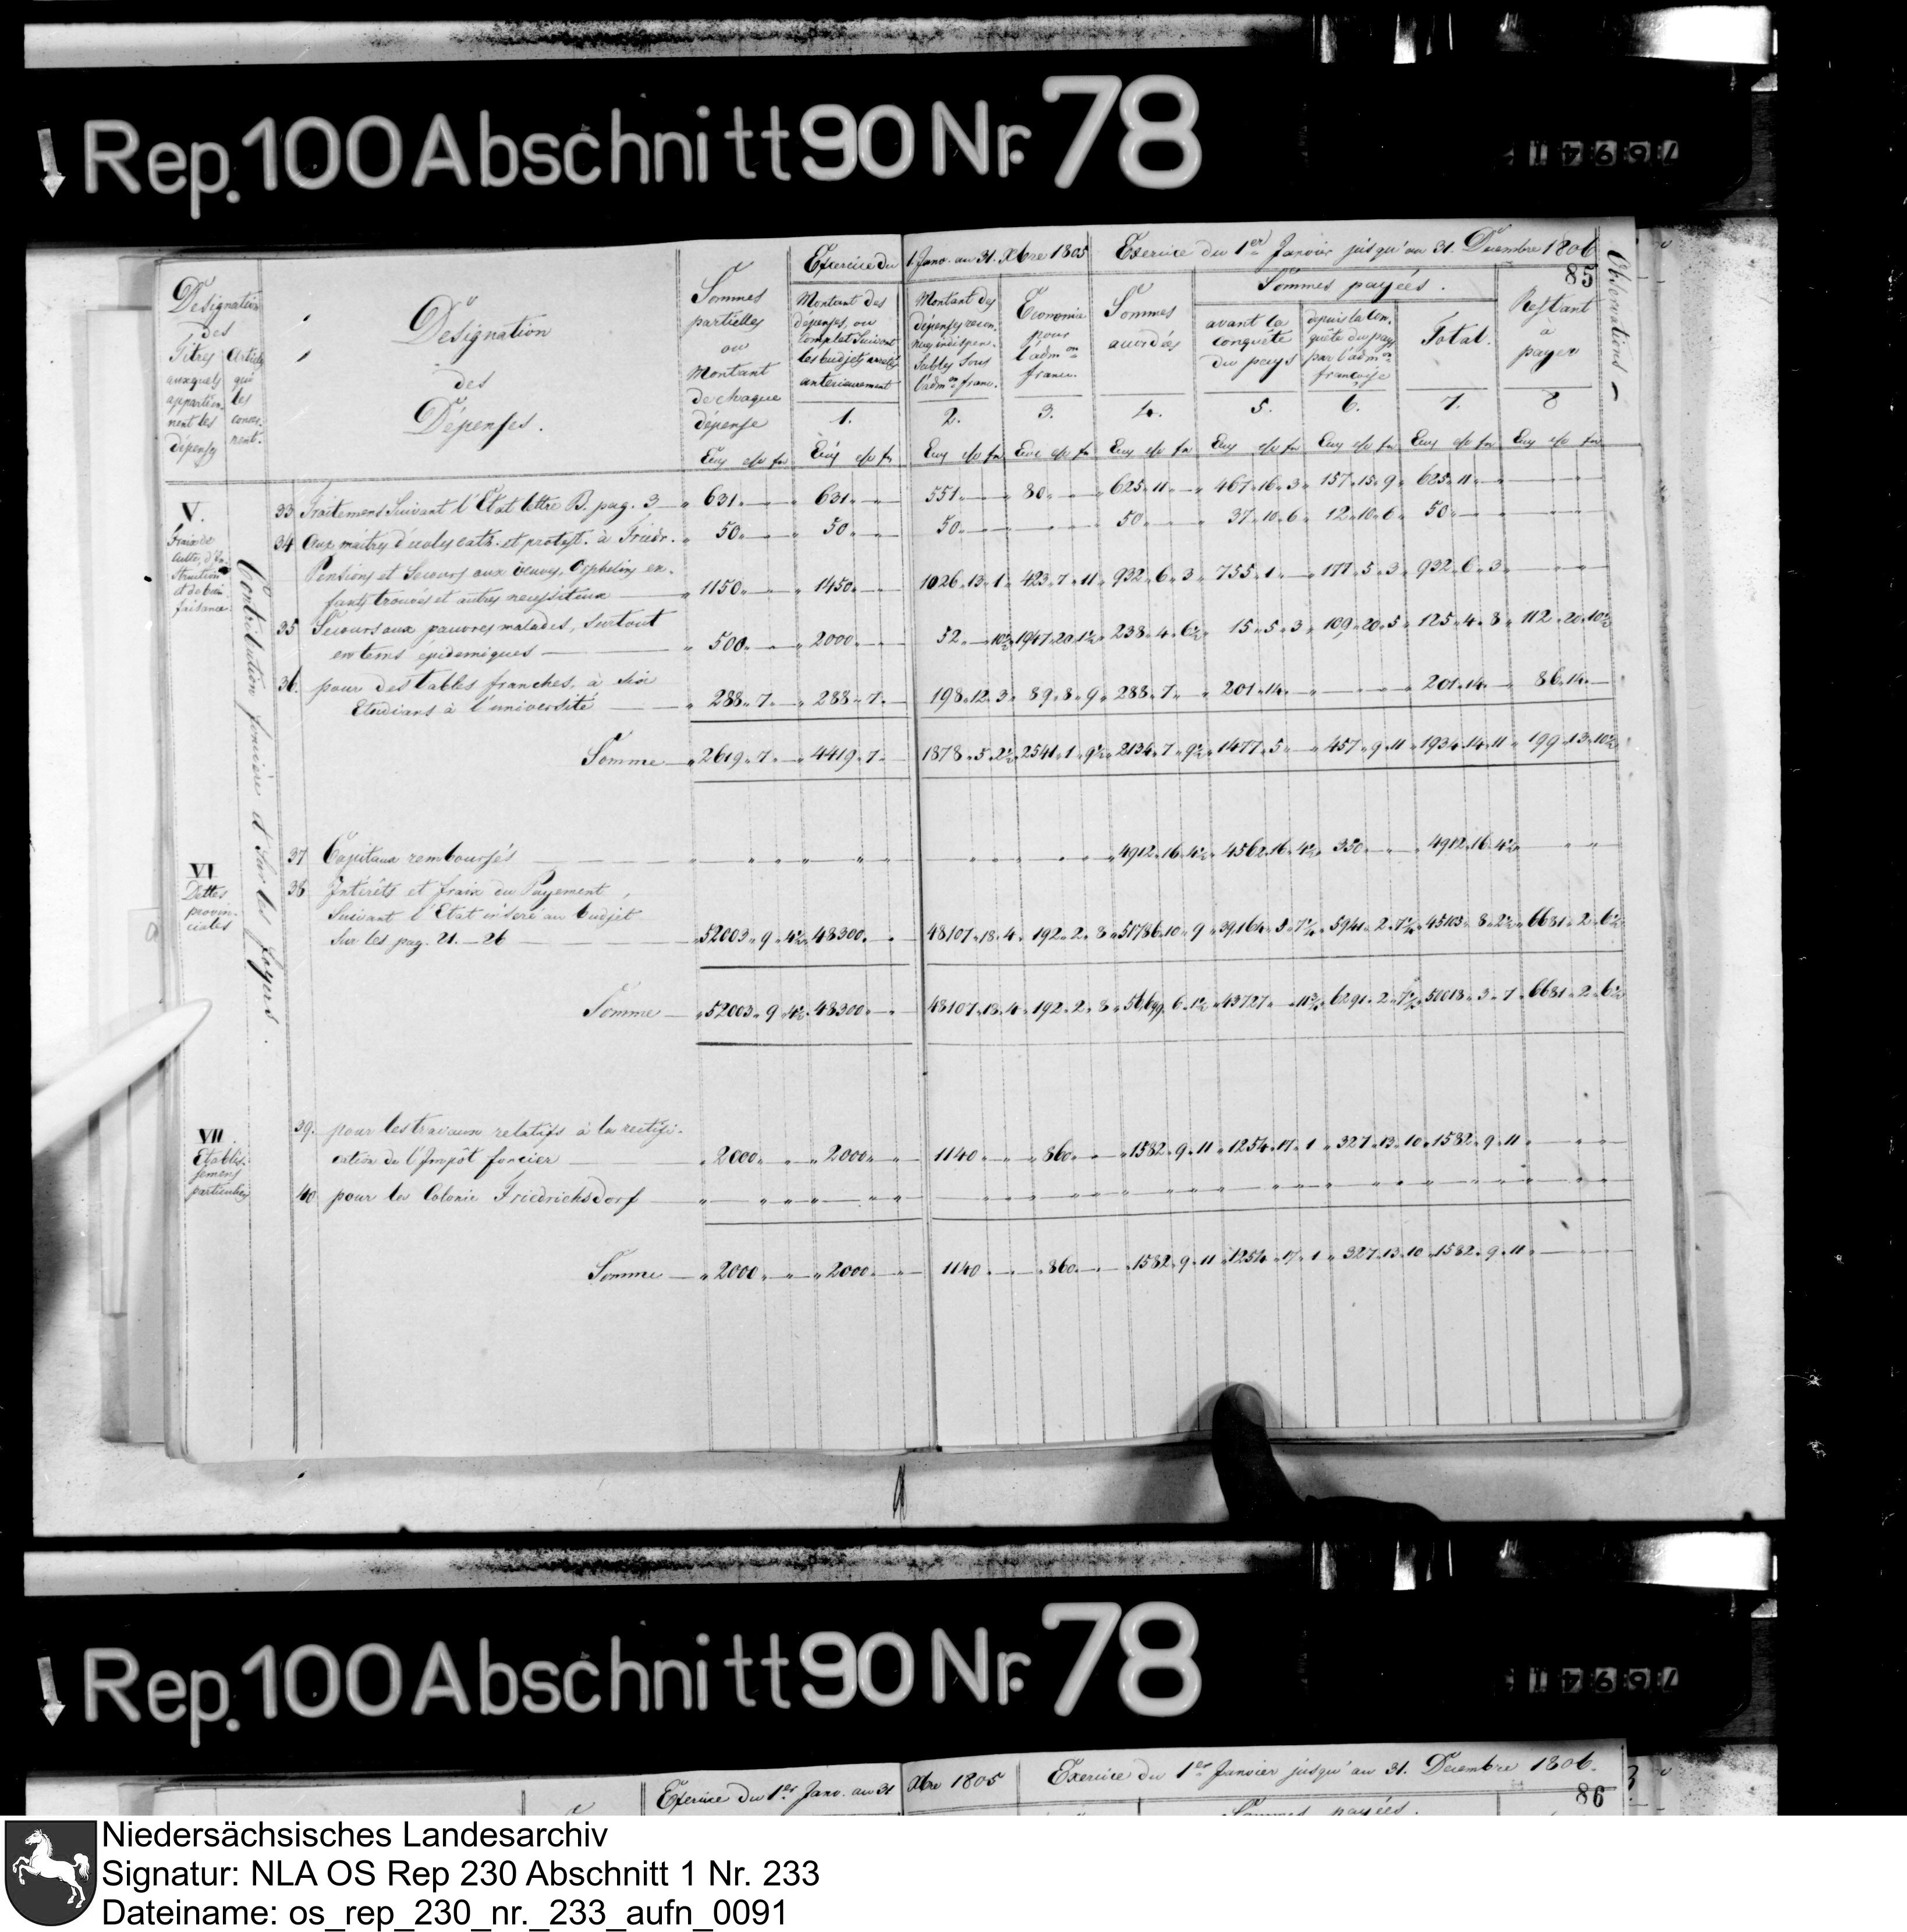 Rep. 100 Abschnitt 90 Nr. 78
Exercice du 1. Janv. au 31. Xbre 1805
Exercice du 1er Janvier jusqu'au 31. Decembre 1806
85
Observations
Designation des
Titres auxquels appartiennent les dépenses
Articles qui les concernent.
Designation
des
Dépenses.
Sommes partielles ou Montant de chaque dépense
Montant des dépenses, ou complet suivant les budjets arretés anterieurement
1.
Montant des dépenses reconnues indispensables sous l'admon franc.
2.
Economie pour l'admon franc.
3.
Sommes accordées
4.
Sommes payées.
avant la conquête du pays
5.
depuis la conquête du pays par l'admon françoise
6.
Total.
7.
Restant a payer
8
Contribution foncière et sur les foyers.
V.
Fraix de Culte, d'Instruction et de bienfaisance.
33 Traitemens Suivant l'Etat lettre B. pag. 3 631 631 551 80 625 11 467 16 3 157 15 9 625 11
34 Aux maitres d'ecoles cath. et protest. à Friedr. 50 50 50 50 37 10 6 12 10 6 50
Pensions et Secours aux veuves, Orphelins en-
fants trouvés et autres necessiteux 1150 1450 1026 13 1 423 7 11 932 6 3 755 1 177 5 3 932 6 3
35 Secours aux pauvres malades, surtout
en tems epidemiques 500 2000 52 10½ 1947 20 1½ 238 4 6½ 15 5 3 109 20 5 125 4 8 112 20 10½
36. pour des tables franches, à six
Etudians à l'université 288 7 288 7 198 12 3 89 8 9 288 7 201 14 201 14 86 14
Somme 2619 7 4419 7 1878 5 2½ 2541 1 9½ 2134 7 9½ 1477 5 457 9 11 1934 14 11 199 13 10½
VI
Dettes provinciales
37 Capitaux remboursés 4912 16 4½ 4562 16 4½ 350 4912 16 4½
38 Intérêts et fraix du Payement,
Suivant l'Etat inseré au budjet
sur les pag. 21.-26 52003 9 4½ 48300 48107 18 4 192 2 8 51786 10 9 39164 5 7¼ 5941 2 7¼ 45105 8 2½ 6681 2 6½
Somme 52003 9 4½ 48300 48107 18 4 192 2 8 56699 6 1½ 43727 11¾ 6291 2 7¼ 50018 3 7 6681 2 6½
VII.
Etablissemens particuliers
39. pour les travaux relatifs à la rectifi-
cation de l'Impôt foncier 2000 2000 1140 860 1582 9 11 1254 17 1 327 13 10 1582 9 11
40 pour la Colonie Friedrichsdorf
Somme 2000 2000 1140 860 1582 9 11 1254 17 1 327 13 10 1582 9 11
Rep. 100 Abschnitt 90 Nr. 78
Exercice du 1er Janv. au 31 Xbre 1805
Exercice du 1er Janvier jusqu'au 31. Decembre 1806.
86
Sommes payées.
Niedersächsisches Landesarchiv
Signatur: NLA OS Rep 230 Abschnitt 1 Nr. 233
Dateiname: os_rep_230_nr._233_aufn_0091